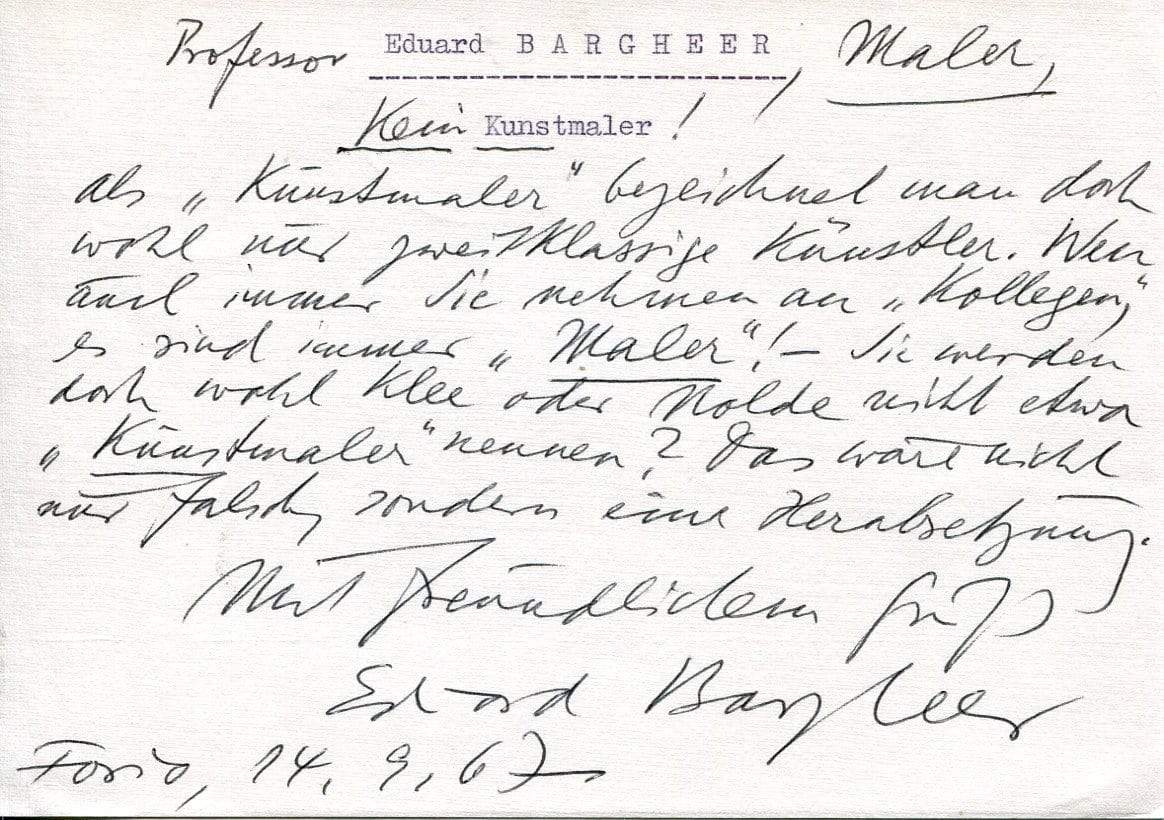 Professor Eduard BARGHEER, Maler,
Kein Kunstmaler!
als „Kunstmaler“ bezeichnet man doch
wohl nur zweitklassige Künstler. Wen
auch immer Sie nehmen an „Kollegen“,
es sind immer „Maler“! – Sie werden
doch wohl Klee oder Nolde nicht etwa
„Kunstmaler“ nennen? Das wäre nicht
nur falsch, sondern eine Herabsetzung.
Mit freundlichem Gruß
Eduard Bargheer
Forio, 14.9.67